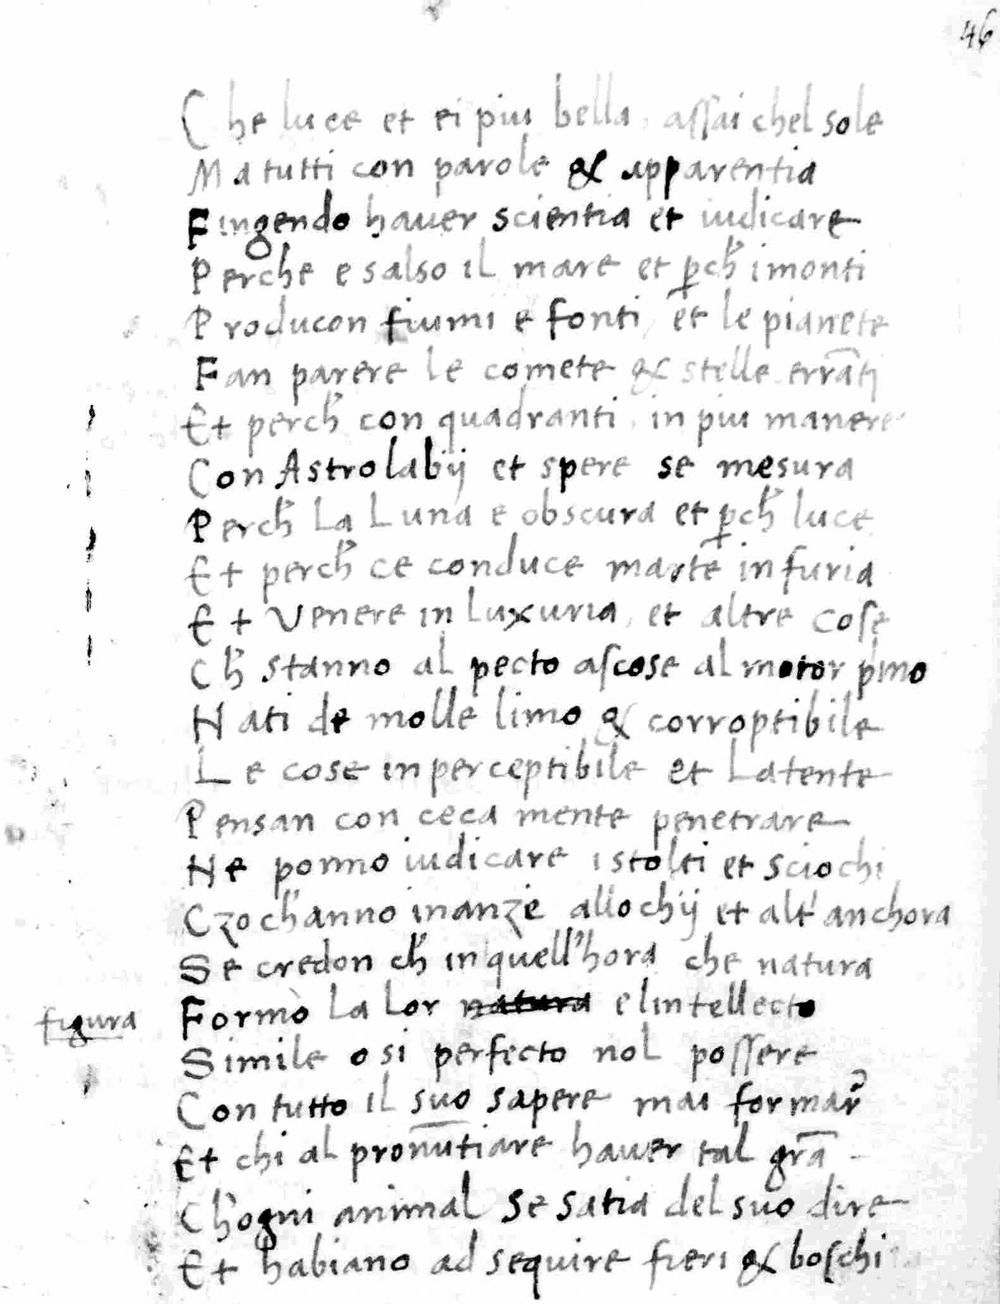 46
Che luce et ei piu bella, assai chel sole
Ma tutti con parole & apparentia
Fingendo hauer scientia et iudicare
Perche e salso il mare et p̱ch̓ imonti
Producon fiumi e fonti, et le pianete
Fan parere le comete & stelle errāti
Et perch̓ con quadranti, in piu manere
Con Astrolabij et spere se mesura
Perch̓ La Luna e obscura et p̱ch̓ luce
Et perch̓ ce conduce marte in furia
Et Venere in Luxuria, et altre cose
Ch̓ stanno al pecto ascose al motor p̓mo
Nati de molle limo & corroptibile
Le cose inperceptibile et Latente
Pensan con ceca mente penetrare
Ne ponno iudicare i stolti et sciochi
Czo ch'anno inanze allochij et alt' anchora
Se credon ch̓ in quell'hora che natura
figura Formò La Lor natura e lintellecto
Simile o si perfecto nol possere
Con tutto il suo sapere mai formar̓
Et chi al pronūtiare hauer tal gr̄a
Ch'ogni animal se satia del suo dire
Et habiano ad sequire fieri & boschi